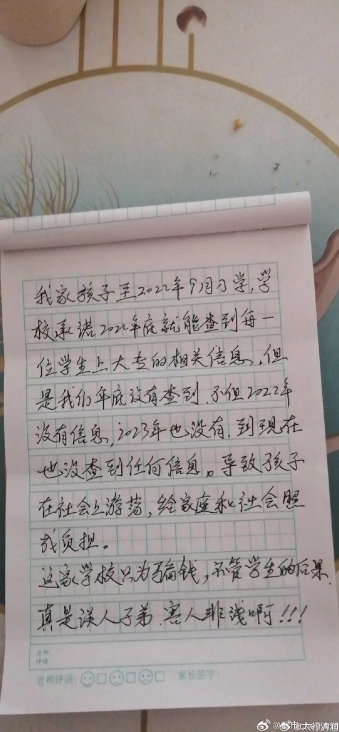 我家孩子至2022年9月习学,学
校承诺2022年底就能查到每一
位学生上大专的相关信息,但
是我们年底没有查到.不但2022年
没有信息,2023年也没有.到现在
也没查到任何信息。导致孩子
在社会上游荡,给家庭和社会照
成负担。
这家学校只为骗钱,不管学生的后果.
真是误人子弟.害人非浅啊!!!
老师评语: 家长签字: